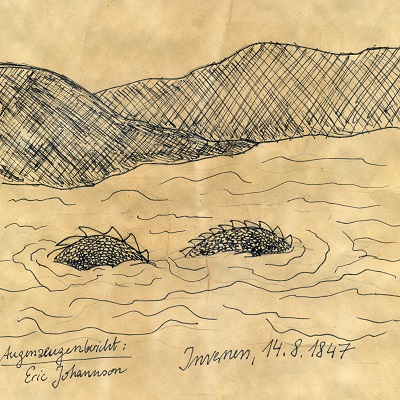 Augenzeugenbericht:
Eric Johannson
Inverness, 14.8.1847